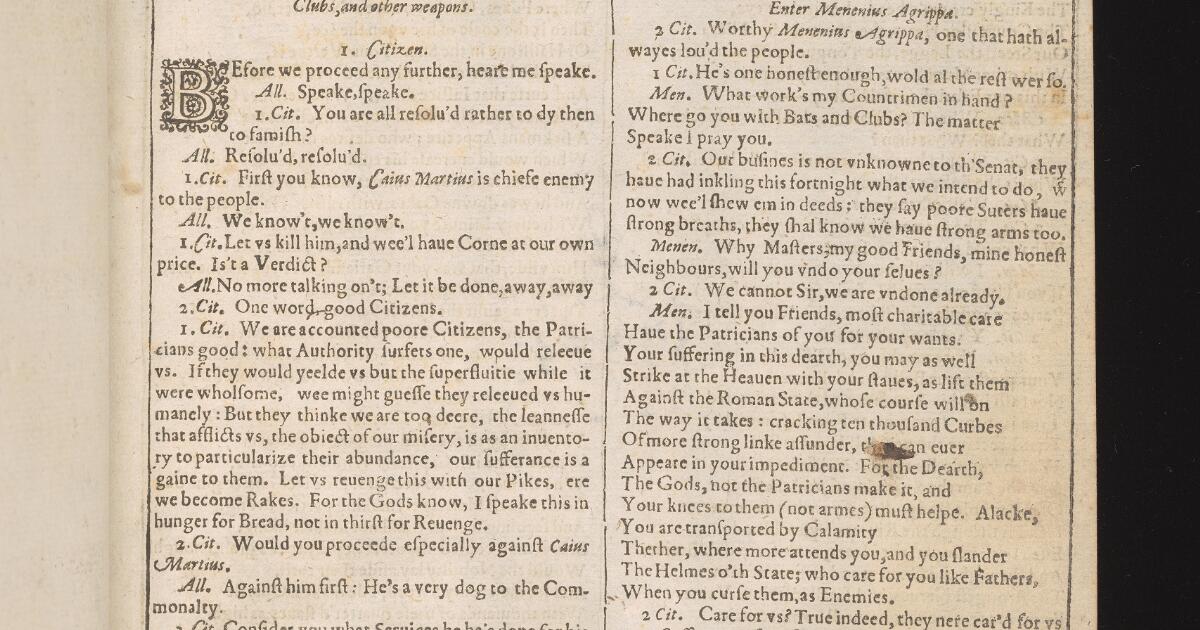 Clubs, and other weapons.
1. Citizen.
BEfore we proceed any further, heare me ſpeake.
All. Speake, ſpeake.
1. Cit. You are all reſolu'd rather to dy then
to famiſh?
All. Reſolu'd, reſolu'd.
1. Cit. Firſt you know, Caius Martius is chiefe enemy
to the people.
All. We know't, we know't.
1. Cit. Let vs kill him, and wee'l haue Corne at our own
price. Is't a Verdict?
All. No more talking on't; Let it be done, away, away
2. Cit. One word, good Citizens.
1. Cit. We are accounted poore Citizens, the Patri-
cians good: what Authority ſurfets one, would releeue
vs. If they would yeelde vs but the ſuperfluitie while it
were wholſome, wee might gueſſe they releeued vs hu-
manely: But they thinke we are too deere, the leanneſſe
that afflicts vs, the obiect of our miſery, is as an inuento-
ry to particularize their abundance, our ſufferance is a
gaine to them. Let vs reuenge this with our Pikes, ere
we become Rakes. For the Gods know, I ſpeake this in
hunger for Bread, not in thirſt for Reuenge.
2. Cit. Would you proceede eſpecially againſt Caius
Martius.
All. Againſt him firſt: He's a very dog to the Com-
monalty.
2 Cit. Conſider you what Seruices he ha's done for his
Enter Menenius Agrippa.
2 Cit. Worthy Menenius Agrippa, one that hath al-
wayes lou'd the people.
1 Cit. He's one honeſt enough, wold al the reſt wer ſo.
Men. What work's my Countrimen in hand?
Where go you with Bats and Clubs? The matter
Speake I pray you.
2 Cit. Our buſines is not vnknowne to th'Senat, they
haue had inkling this fortnight what we intend to do, wͨ
now wee'l ſhew em in deeds: they ſay poore Suters haue
ſtrong breaths, they ſhal know we haue ſtrong arms too.
Menen. Why Maſters, my good Friends, mine honeſt
Neighbours, will you vndo your ſelues?
2 Cit. We cannot Sir, we are vndone already.
Men. I tell you Friends, moſt charitable care
Haue the Patricians of you for your wants.
Your ſuffering in this dearth, you may as well
Strike at the Heauen with your ſtaues, as lift them
Againſt the Roman State, whoſe courſe will on
The way it takes: cracking ten thouſand Curbes
Of more ſtrong linke aſſunder, can euer
Appeare in your impediment. For the Dearth,
The Gods, not the Patricians make it, and
Your knees to them (not armes) muſt helpe. Alacke,
You are tranſported by Calamity
Thether, where more attends you, and you ſlander
The Helmes o'th State; who care for you like Fathers,
When you curſe them, as Enemies.
2 Cit. Care for vs? True indeed, they nere car'd for vs